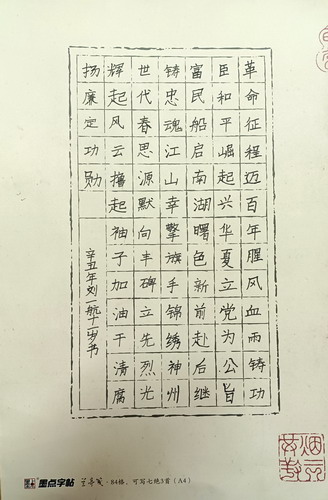 革命征程迈百年腥风血雨铸功
臣和平崛起兴华夏立党为公旨
富民船启南湖曙色新前赴后继
铸忠魂江山幸擎旗手锦绣神州
世代春思源默向丰碑立先烈光
辉起风云撸起袖子加油干清腐
扬廉定功勋
辛丑年刘一航十一岁书
墨点字帖 兰亭笺·84格，可写七绝3首（A4）